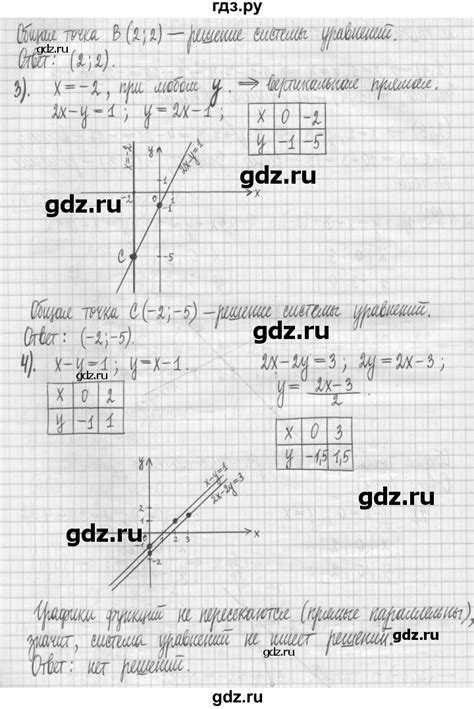 гдз.ру
Общая точка B (2; 2) — решение системы уравнений.
Ответ: (2; 2).
3). x = -2, при любом y. ⇒ вертикальная прямая.
2x-y=1; y=2x-1;
x 0 -2
y -1 -5
x=-2
y
2x-y=1
gdz.ru
gdz.ru
-2
0
1
-1
x
C
-5
gdz.ru
Общая точка C (-2; -5) — решение системы уравнений.
Ответ: (-2; -5).
gdz.ru
4). x-y=1; y=x-1.
2x-2y=3; 2y=2x-3;
y= 2x-3 / 2
x 0 2
y -1 1
x 0 3
y -1,5 1,5
gdz.ru
y
x-y=1
2x-2y=3
gdz.ru
2
1
0
2 3
x
-1
-2
gdz.ru
Графики функций не пересекаются (прямые параллельны),
значит, система уравнений не имеет решений.
Ответ: нет решений.
gdz.ru
gdz.ru